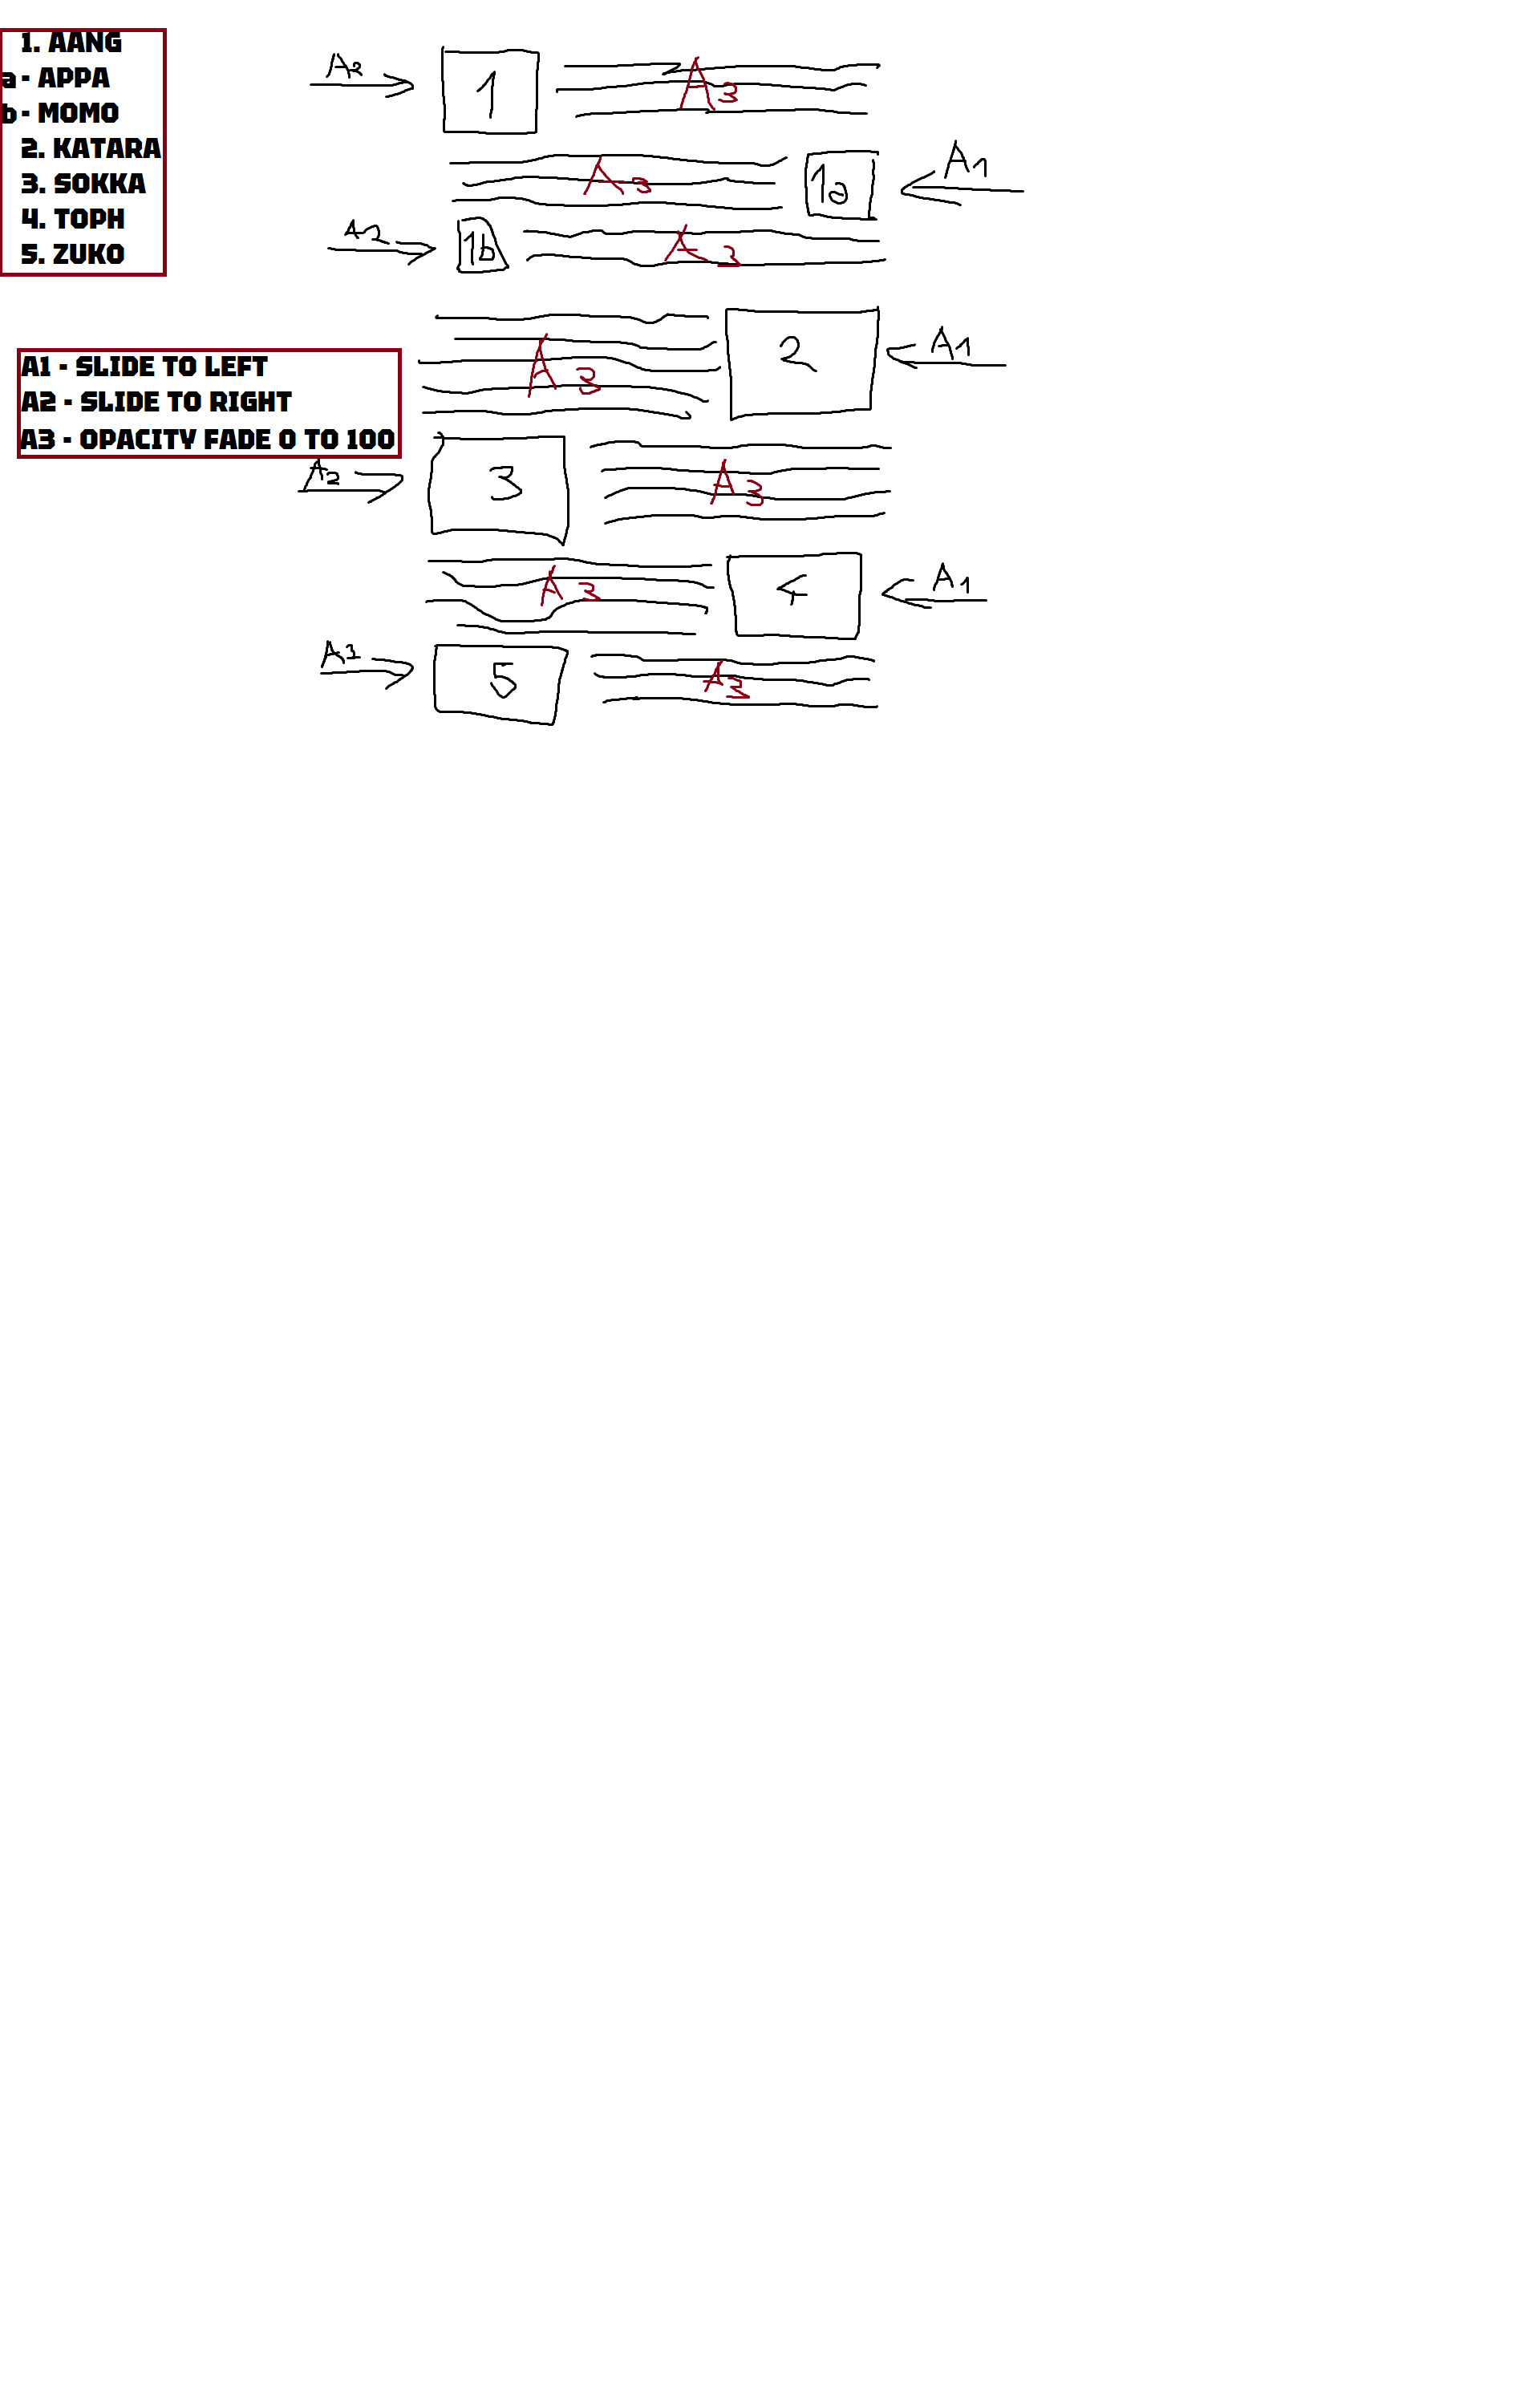 1. AANG
a - APPA
b - MOMO
2. KATARA
3. SOKKA
4. TOPH
5. ZUKO
A1 - SLIDE TO LEFT
A2 - SLIDE TO RIGHT
A3 - OPACITY FADE 0 TO 100
A2 1 A3
A3 1a A1
A2 1b A3
A3 2 A1
A2 3 A3
A3 4 A1
A3 5 A3